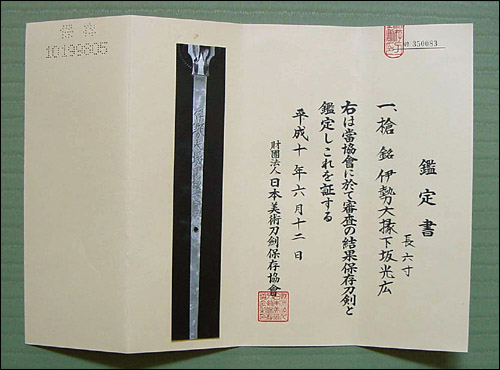 鑑定書
長六寸
一、槍 銘 伊勢大掾下坂光広
右は當協會に於て審査の結果保存刀劍と
鑑定しこれを証する
平成十年六月十二日
財團法人日本美術刀劍保存協會
350083
保存
10199805